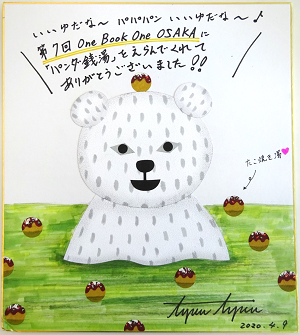 いいゆだな〜 パパパパン いいゆだな〜♪
第7回 One Book One OSAKA に
「パンダ銭湯」をえらんでくれて
ありがとうございました!!
たこ焼き湯
tupera tupera
2020.4.9